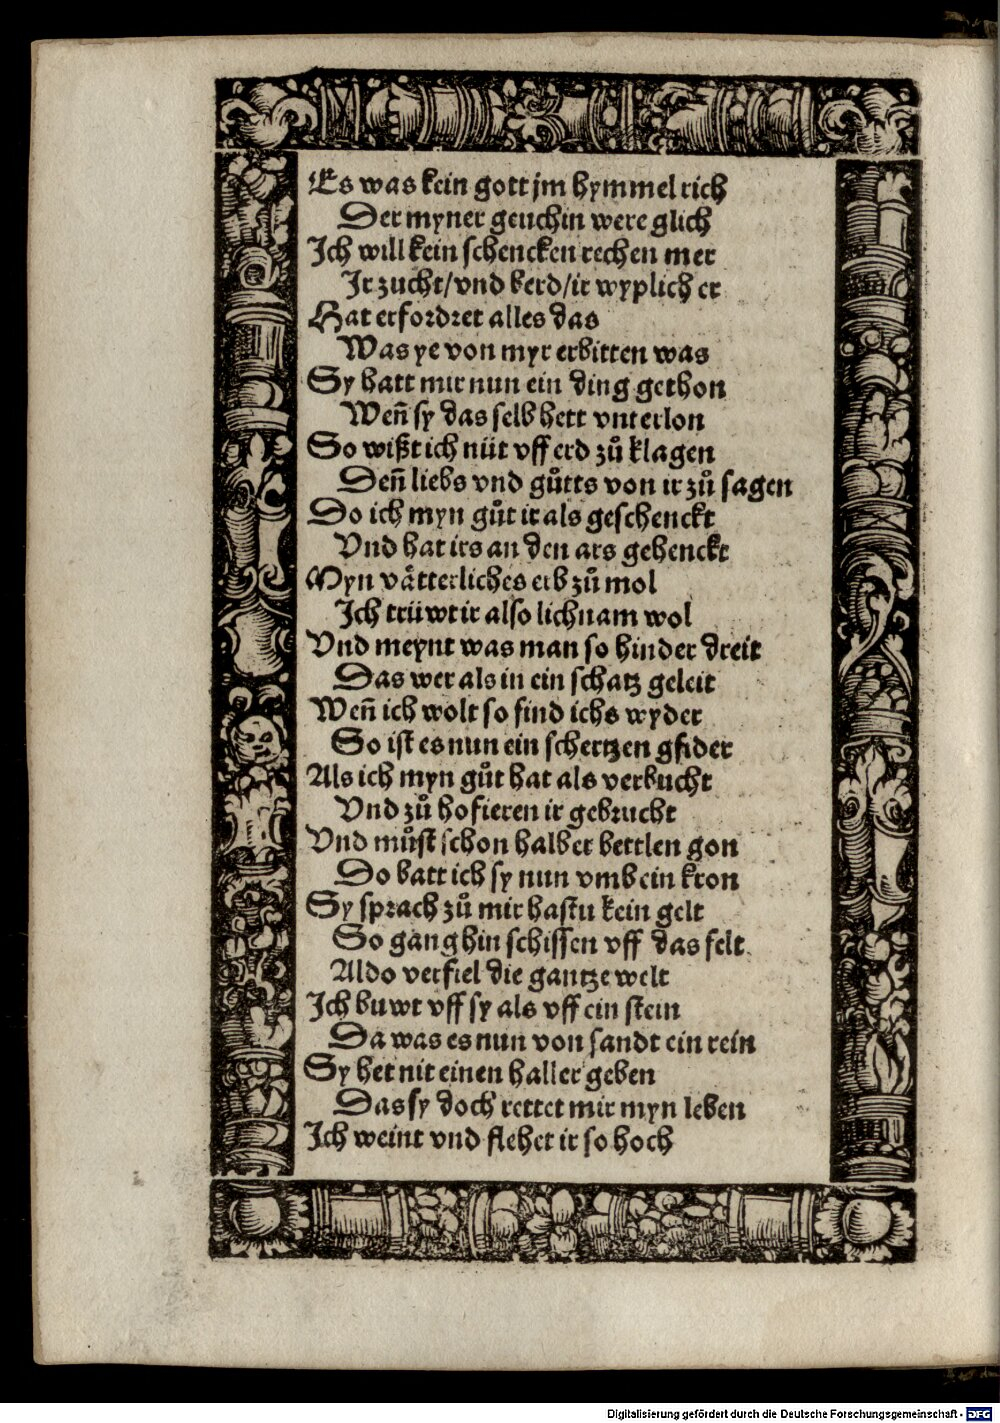 Es was kein gott jm hymmel rich
Der myner geuchin were glich
Ich will kein schencken rechen mer
Ir zucht/vnd berd/ir wyplich er
Hat erfordret alles das
Was ye von myr erbitten was
Sy hatt mir nun ein ding gethon
Weñ sy das selb hett vnterlon
So wißt ich nüt vff erd zů klagen
Deñ liebs vnd gůtts von ir zů sagen
Do ich myn gůt ir als geschenckt
Vnd hat irs an den ars gehenckt
Myn vätterliches erb zů mol
Ich trüwt ir also lichnam wol
Vnd meynt was man so hinder dreit
Das wer als in ein schatz geleit
Weñ ich wolt so find ichs wyder
So ist es nun ein schertzen gfider
Als ich myn gůt hat als verbucht
Vnd zů hofieren ir gebrucht
Vnd můst schon halber bettlen gon
Do batt ich sy nun vmb ein kron
Sy sprach zů mir hastu kein gelt
So gang hin schissen vff das felt
Aldo verfiel die gantze welt
Ich buwt vff sy als vff ein stein
Da was es nun von sandt ein rein
Sy het nit einen haller geben
Das sy doch rettet mir myn leben
Ich weint vnd flehet ir so hoch
Digitalisierung gefördert durch die Deutsche Forschungsgemeinschaft - DFG